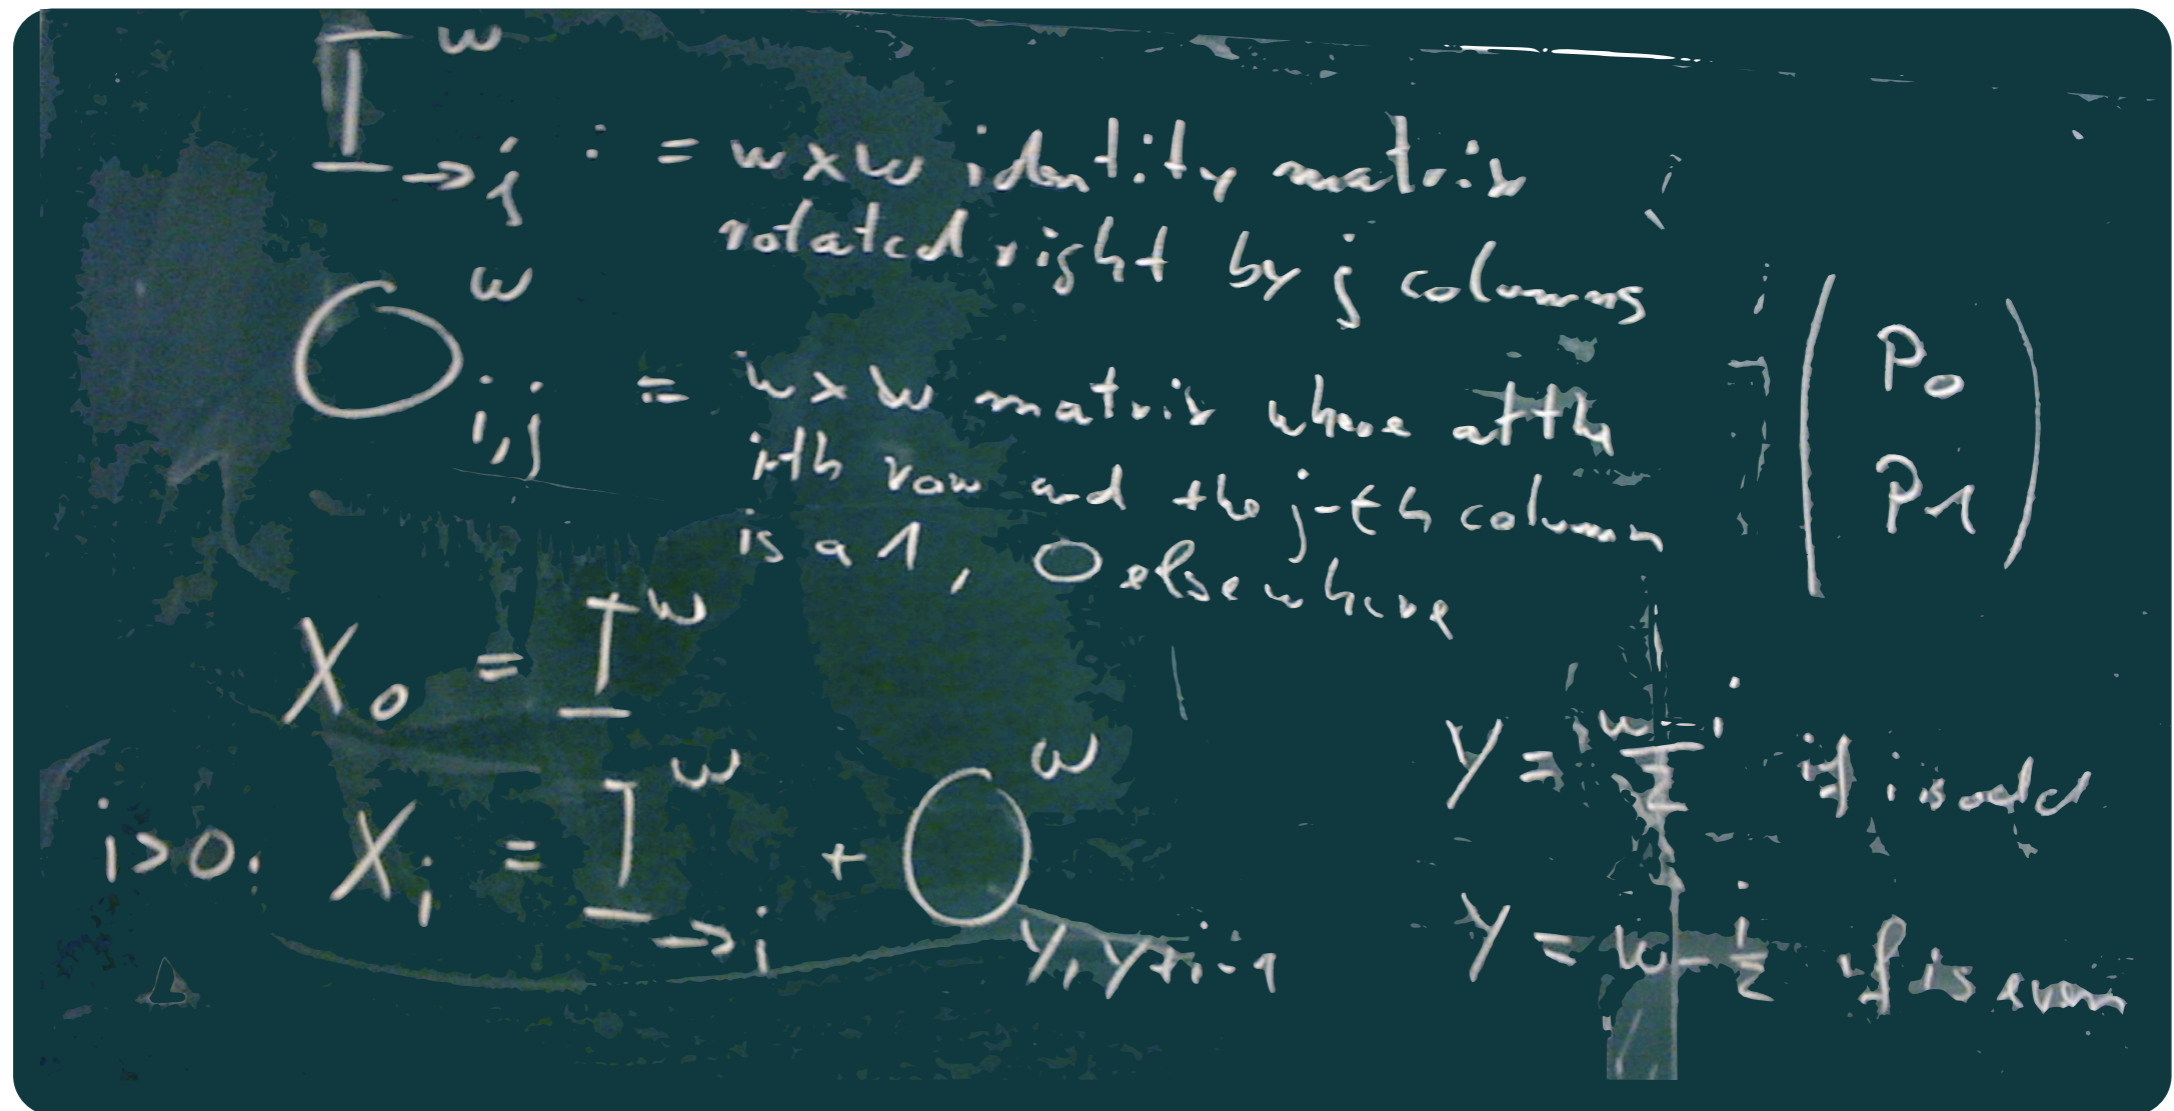 I^w_{→j} := w×w identity matrix
rotated right by j columns
O^w_{i,j} = w×w matrix where at the
i-th row and the j-th column
is a 1, 0 elsewhere
(P0
P1)
X_0 = I^w
i>0: X_i = I^w_{→i} + O^w_{y,y+i-1}
y = \frac{w-i}{2} if i is odd
y = w - \frac{i}{2} if is even